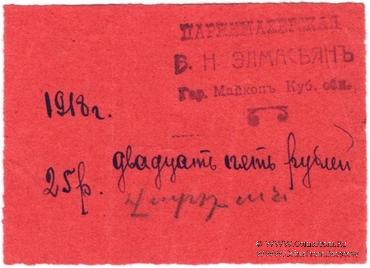 ПАРИКМАХЕРСКАЯ
В. Н. ЭЛМАСЬЯНЪ
Гор. Майкоп Куб. обл.
1918 г.
двадцать пять рублей
25 р.